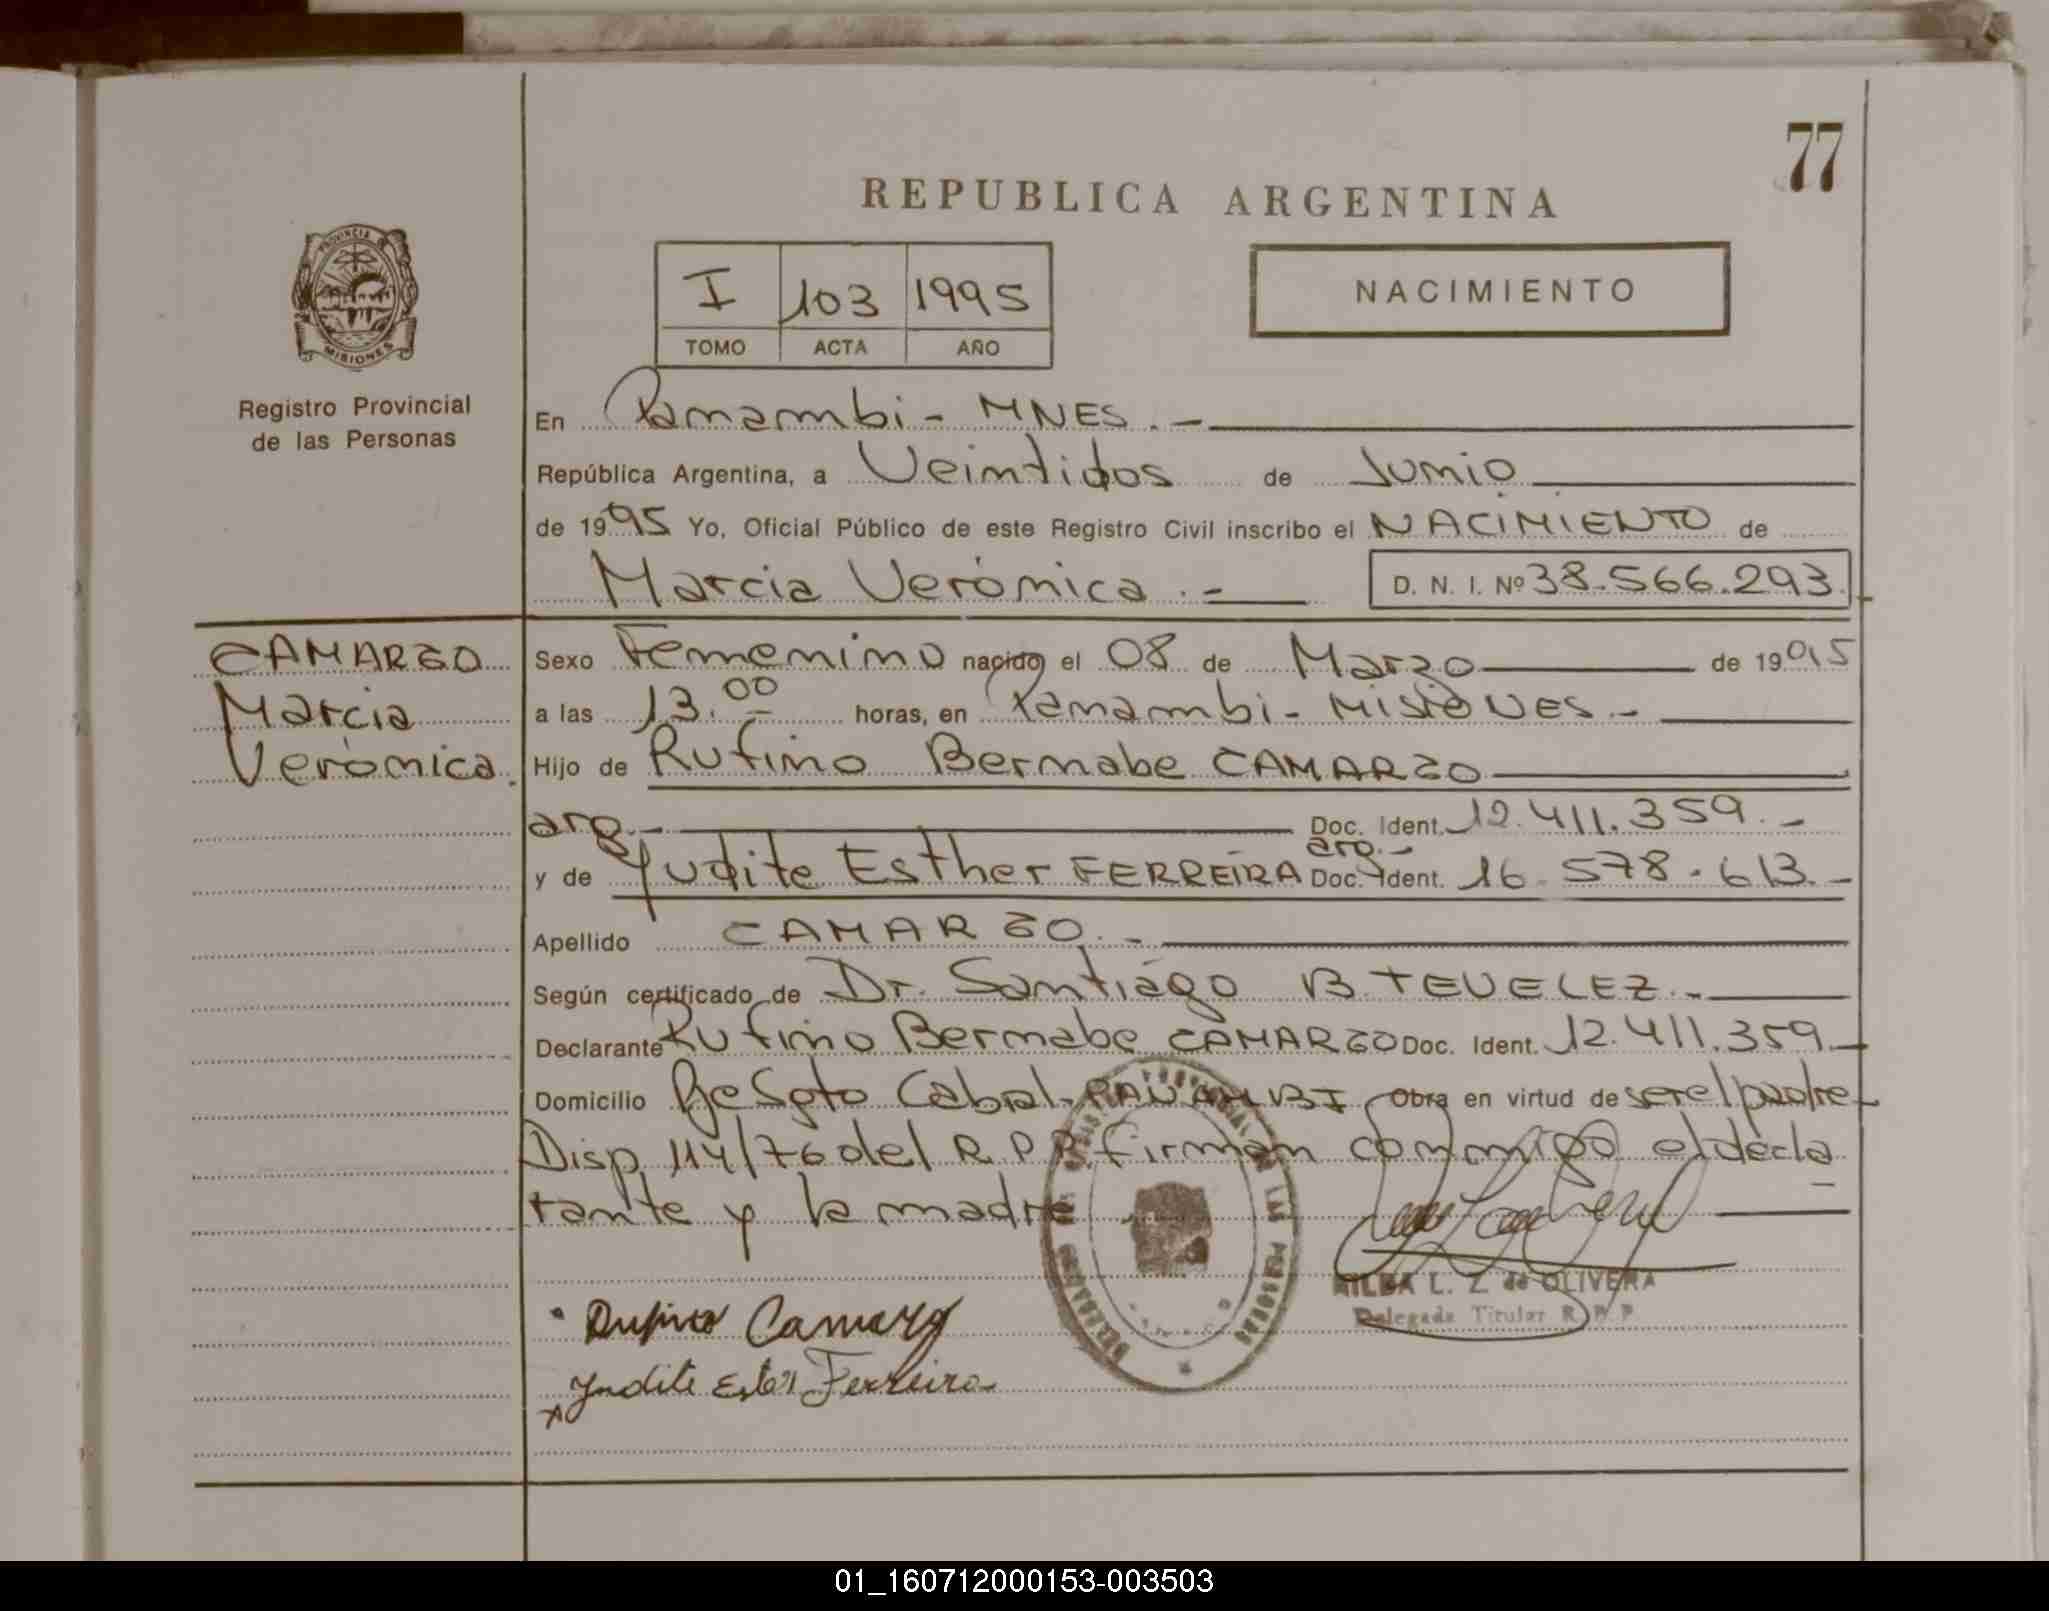 77
REPUBLICA ARGENTINA
PROVINCIA DE
MISIONES
I 103 1995
TOMO ACTA AÑO
NACIMIENTO
Registro Provincial
de las Personas
En Panambi - MNES. -
República Argentina, a Veintidos de Junio
de 1995 Yo, Oficial Público de este Registro Civil inscribo el NACIMIENTO de
Marcia Verónica. - D. N. I. Nº 38.566.293.
CAMARGO
Marcia
Verónica.
Sexo Femenino nacido el 08 de Marzo de 1995
a las 13.00 horas, en Panambi - MISIONES. -
Hijo de Rufino Bernabe CAMARGO
arg. - Doc. Ident. 12.411.359. -
arg. -
y de Yudite Esther FERREIRA Doc. Ident. 16.578.613. -
Apellido CAMARGO. -
Según certificado de Dr. Santiago B TEVELEZ. -
Declarante Rufino Bernabe CAMARGO Doc. Ident. 12.411.359. -
Domicilio Bº Sgto Cabral - PANAMBI Obra en virtud de ser el padre
Disp. 114/76 del R.P.P. firman conmigo el decla
rante y la madre
L. Z. de OLIVERA
Delegada Titular R.P.P.
Rufino Camargo
Yudite Ester Ferreira
01_160712000153-003503